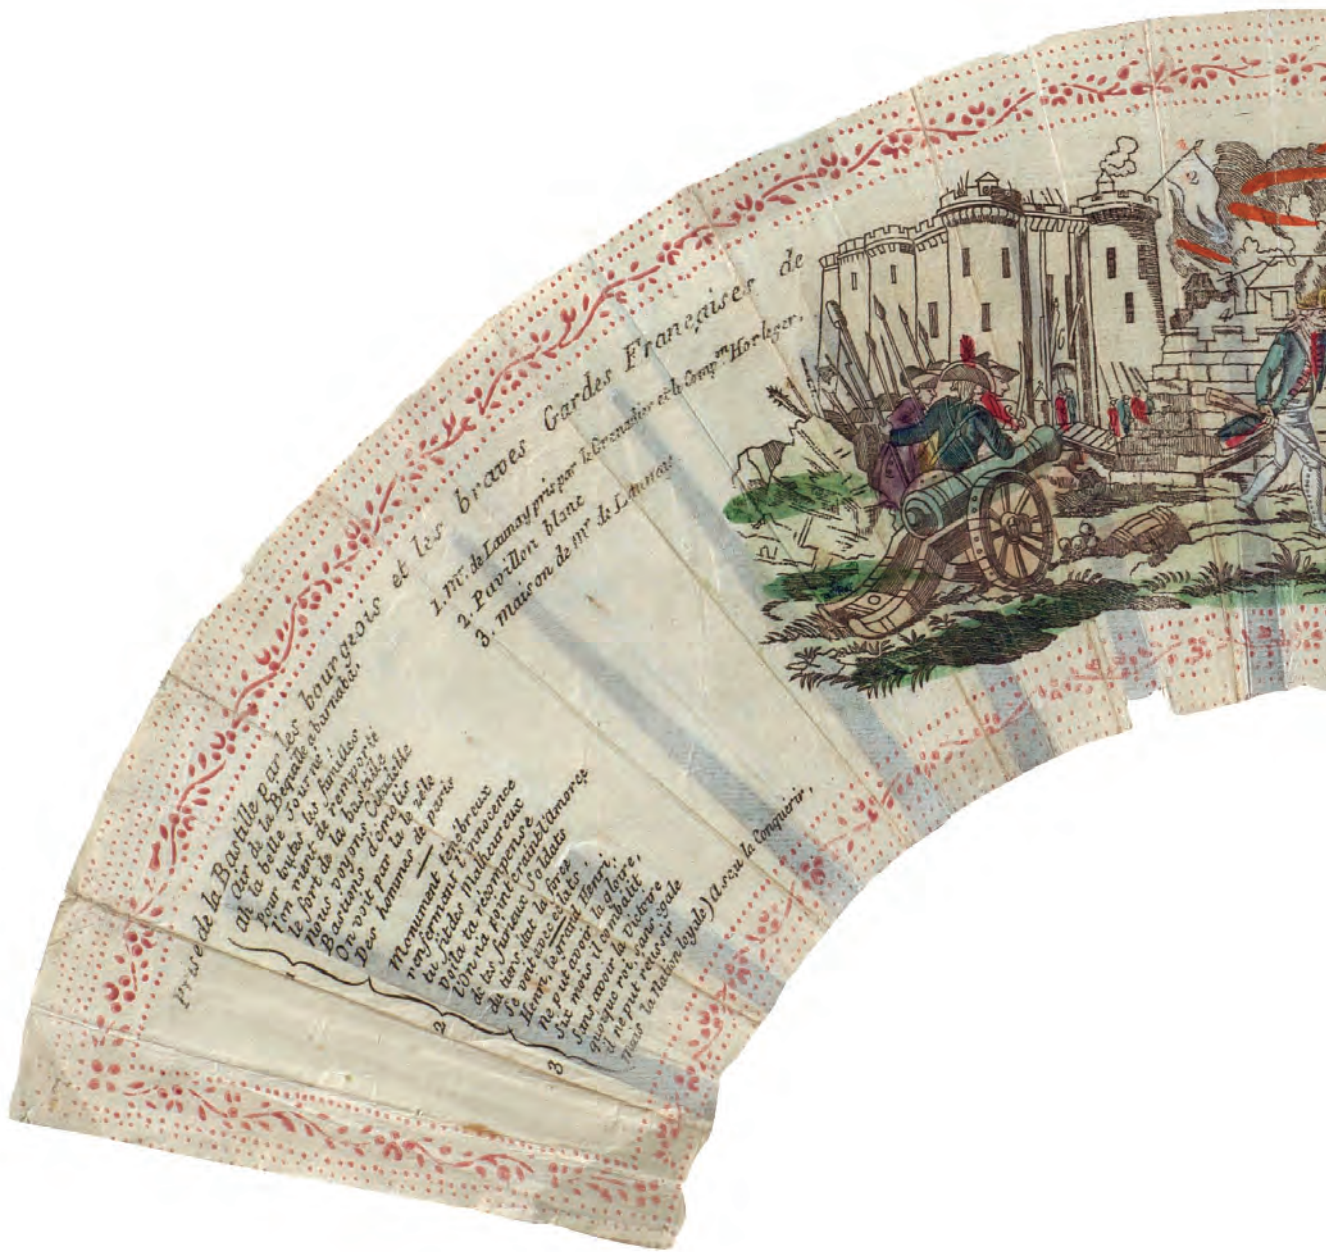 Prise de la Bastille par les bourgeois et les braves Gardes Françaises de
1. mr. de Launay pris par le Grenadier et le Compm. Horloger,
2. Pavillon blanc
3. maison de mr. de Launay
air de la Bequille a barnaba
1
ah la belle Journé
Pour toutes les familles
l'on vient de remporté
le fort de la bastille
Nous voyons Ce
Bastions d'émolis
On voit par la le zéle
Des hommes de paris
2
Monument tenebreux
renfermant l'innocence
tu fit des Malheureux
Voila ta récompense
l'On n'a point craint l'amorce
de tes furieux Soldats
du tiers état la force
se voit avec éclats
3
Henri, le grand Henri,
ne put avoir la gloire,
Six mois il combatit
sans avoir la Victoire
quoique roi, sans égale
il ne put reussir
mais la Nation loyale) A sçu la Conquerir,
2
4